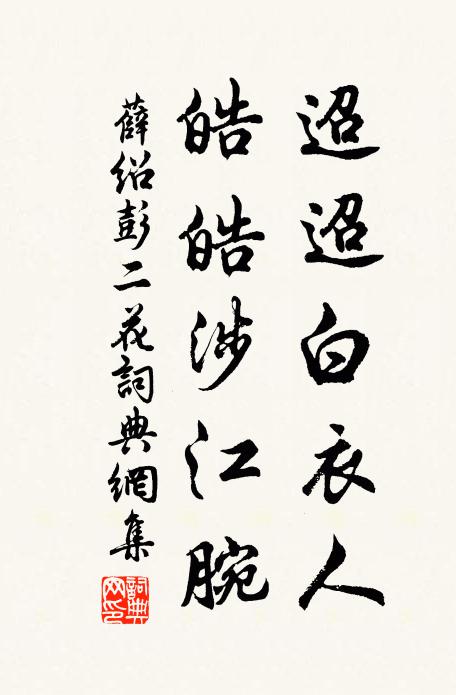 迢迢白衣人
皓皓涉江腕
薛紹彭二花詞典網集
詞典
网印